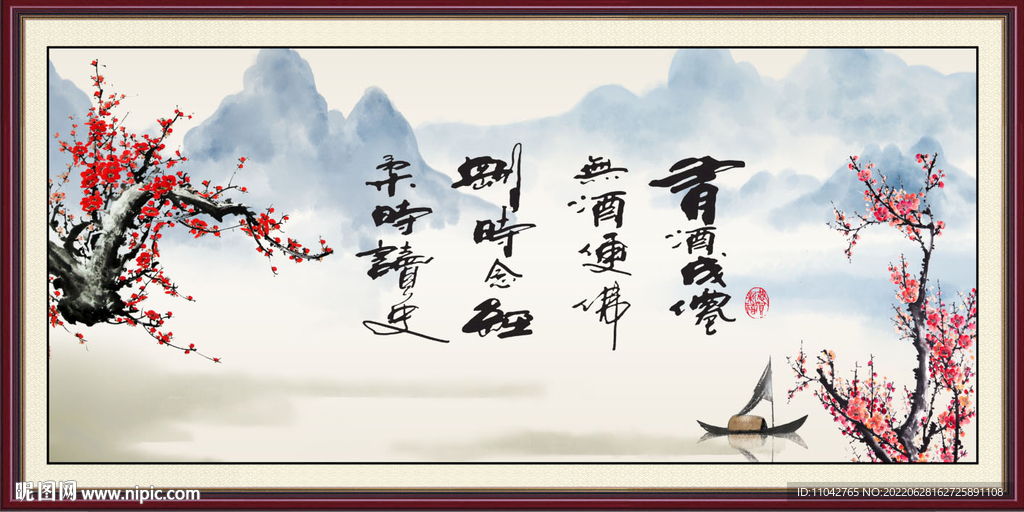 有酒成僊
無酒便佛
剛時念經
柔時讀史
昵图网 www.nipic.com
ID:11042765 NO:20220628162725891108